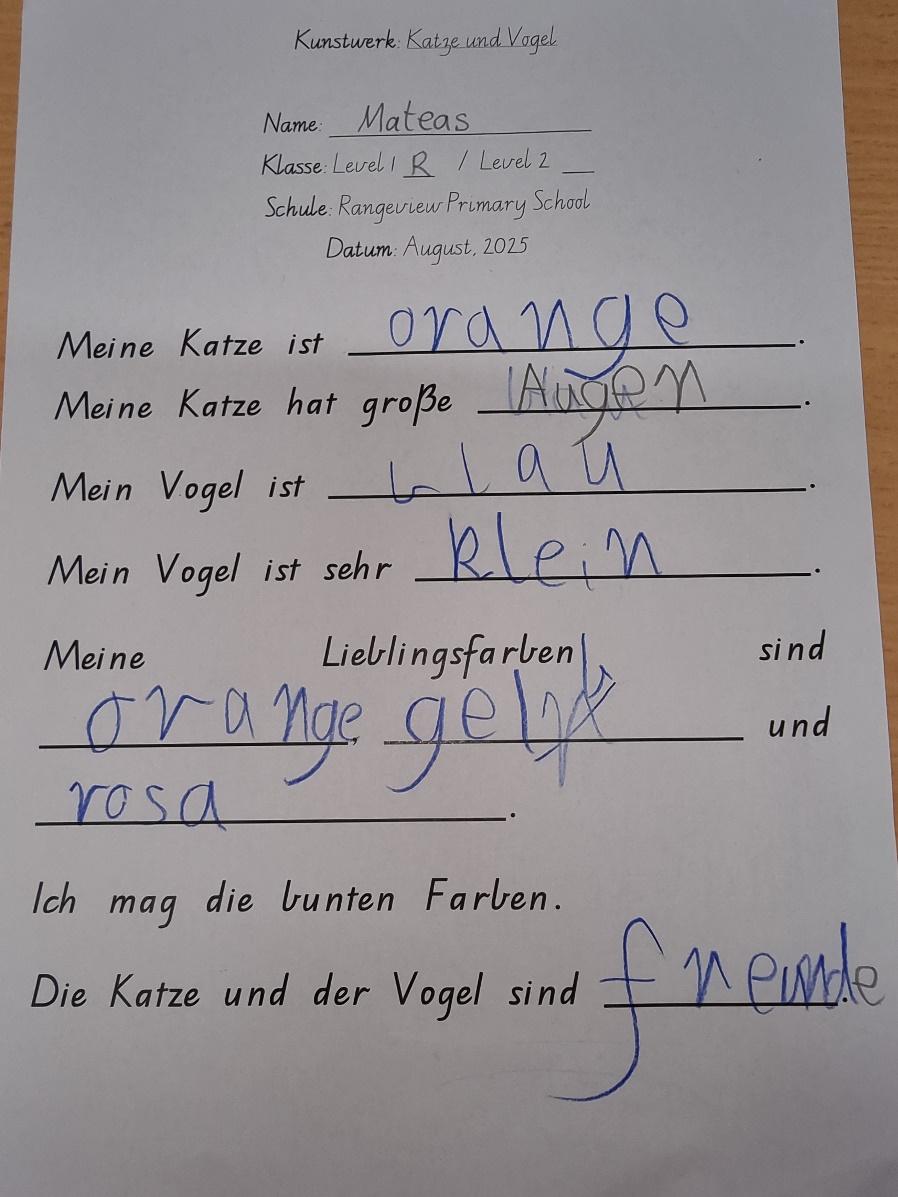 Kunstwerk: Katze und Vogel
Name: Mateas
Klasse: Level 1 R / Level 2 __
Schule: Rangeview Primary School
Datum: August, 2025
Meine Katze ist orange.
Meine Katze hat große Augen.
Mein Vogel ist blau.
Mein Vogel ist sehr klein.
Meine Lieblingsfarben sind
orange, gelb und
rosa.
Ich mag die bunten Farben.
Die Katze und der Vogel sind freunde.